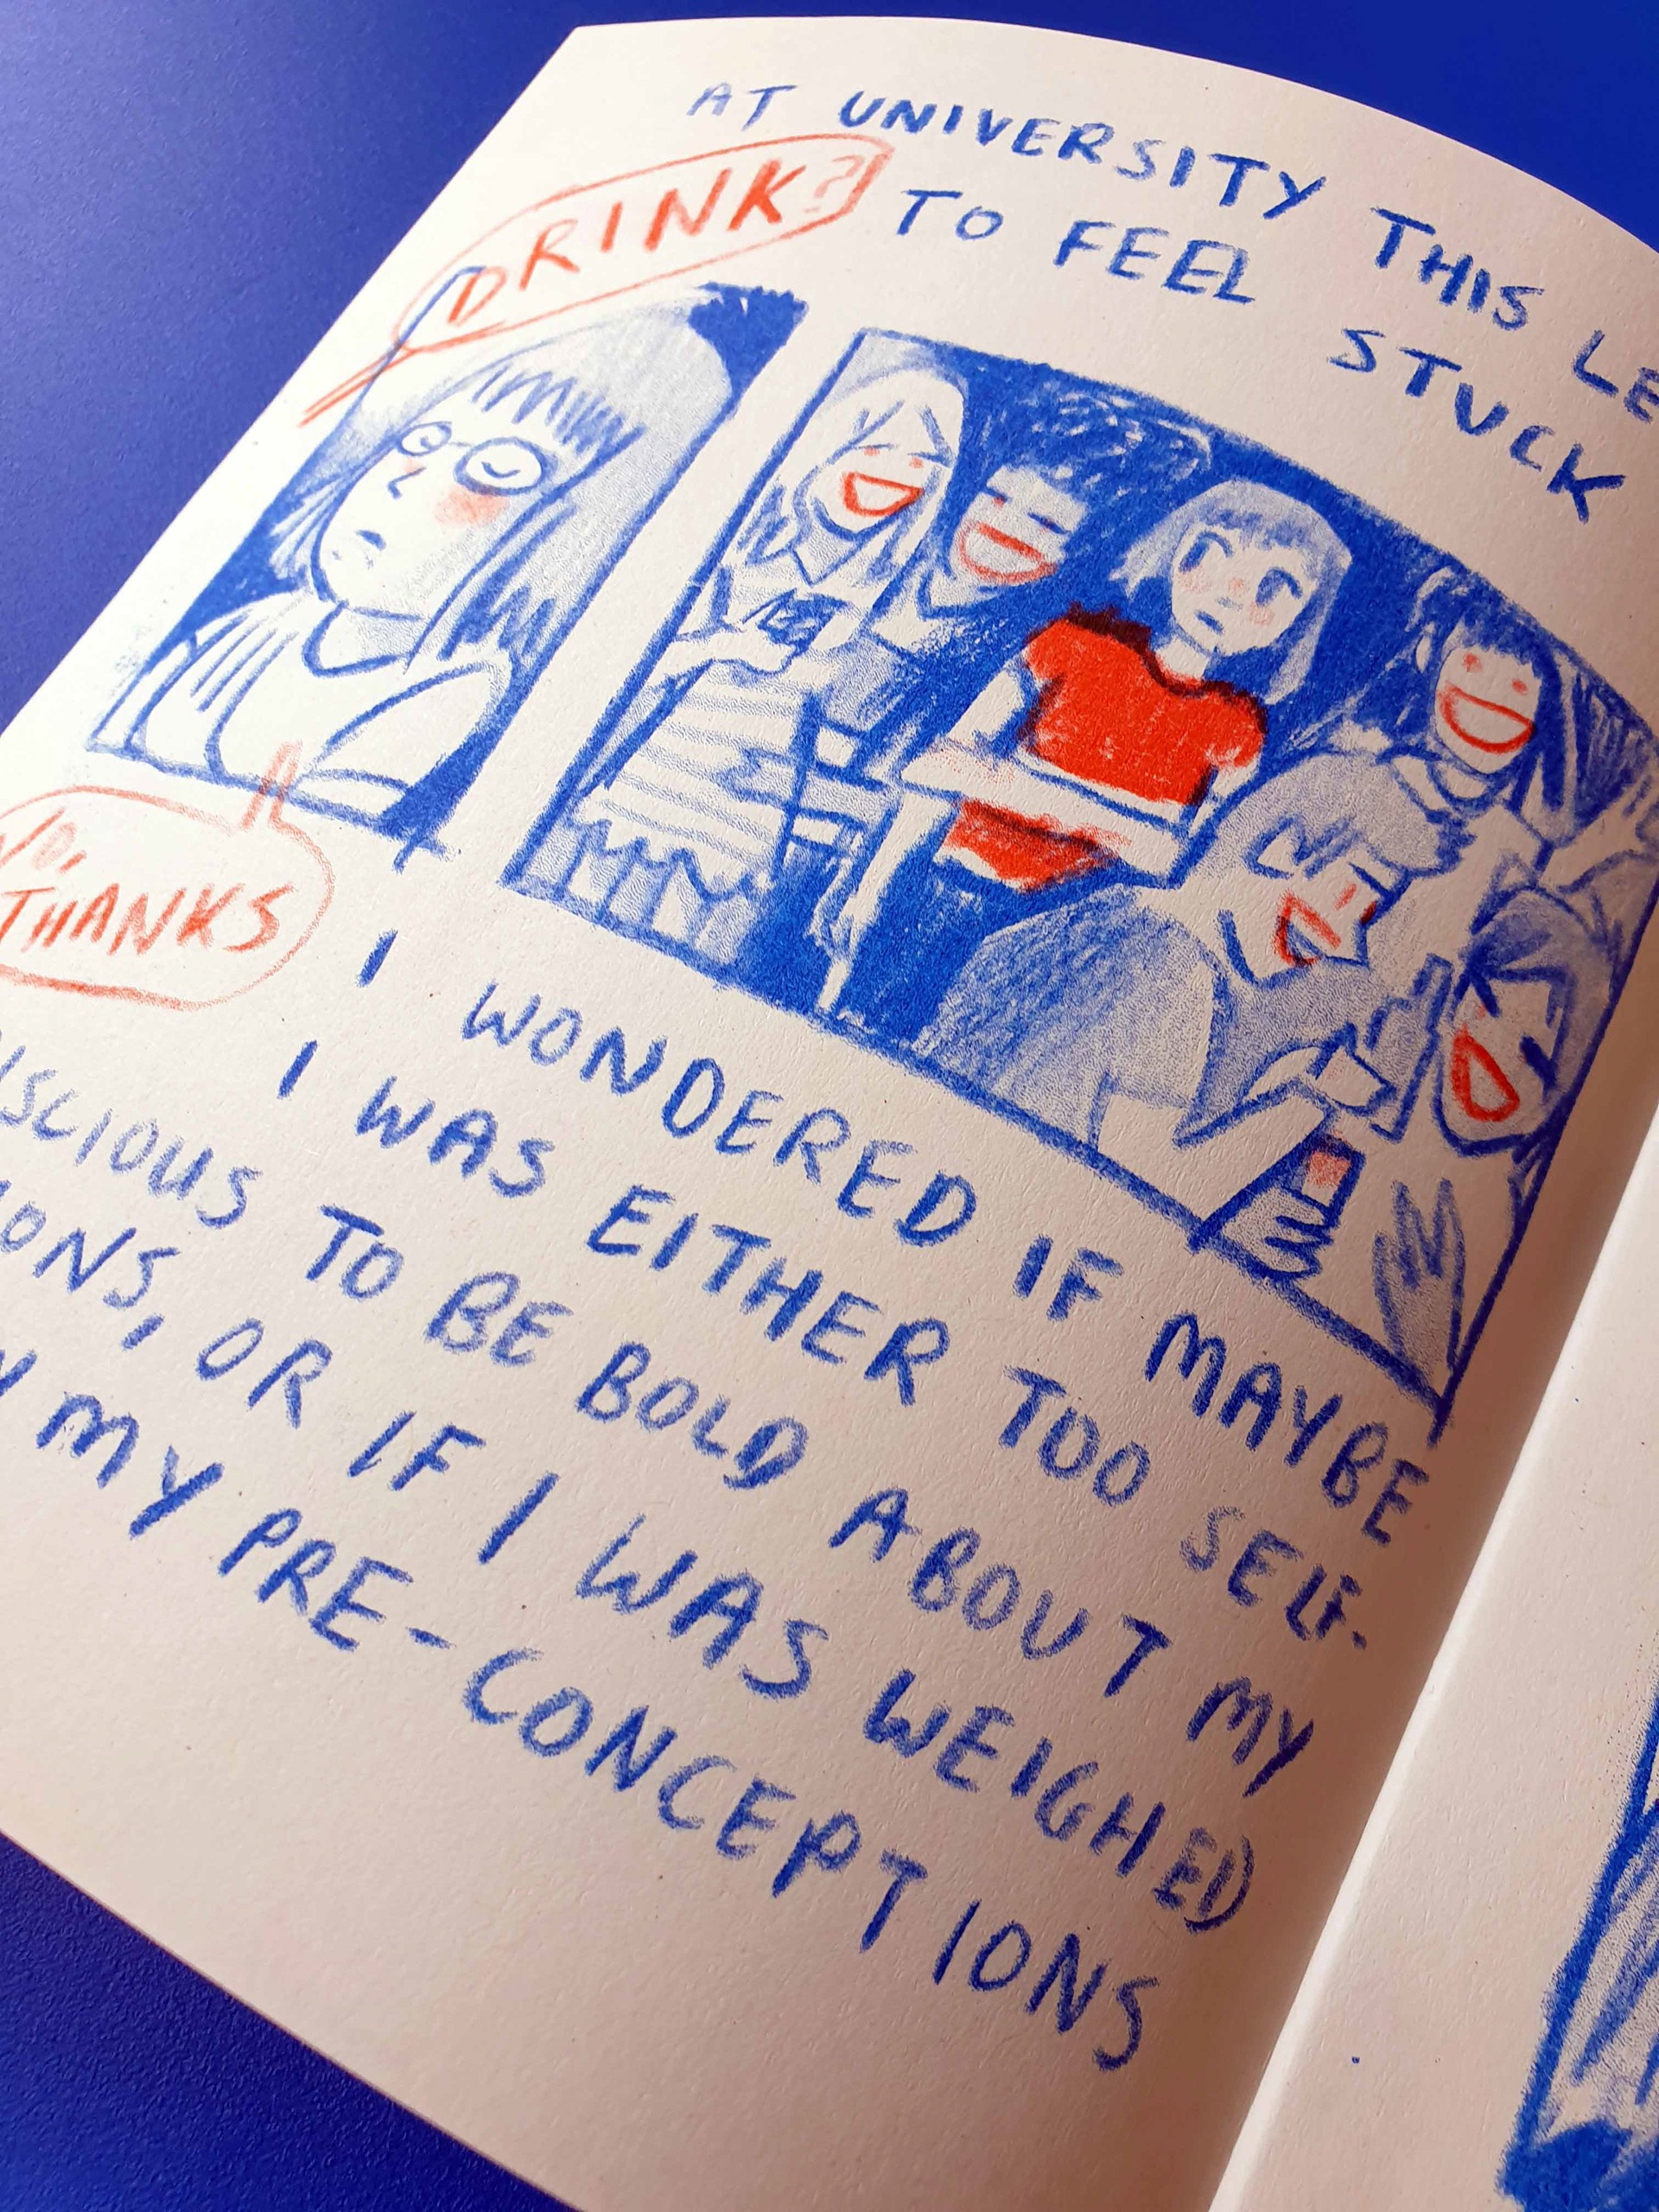 AT UNIVERSITY THIS LE
TO FEEL STUCK
DRINK?
NO,
THANKS
I WONDERED IF MAYBE
I WAS EITHER TOO SELF-
NSCIOUS TO BE BOLD ABOUT MY
IONS, OR IF I WAS WEIGHED
N MY PRE-CONCEPTIONS